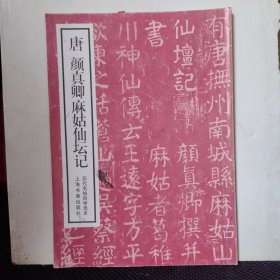 唐 颜真卿麻姑仙坛记
历代法帖自学选本
上海书画出版社
有唐撫州南城縣麻姑
仙壇記 顏真卿撰并
書 麻姑者葛稚
川神仙傳云王遠字方平
欲東之括蒼山過吳蔡經